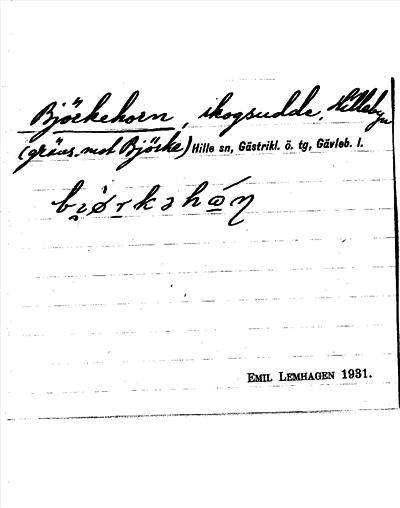 Björkehorn, skogsudde, Hillebyn
(gräns mot Björke) Hille sn, Gästrikl. ö. tg, Gävleb. l.
EMIL LEMHAGEN 1931.